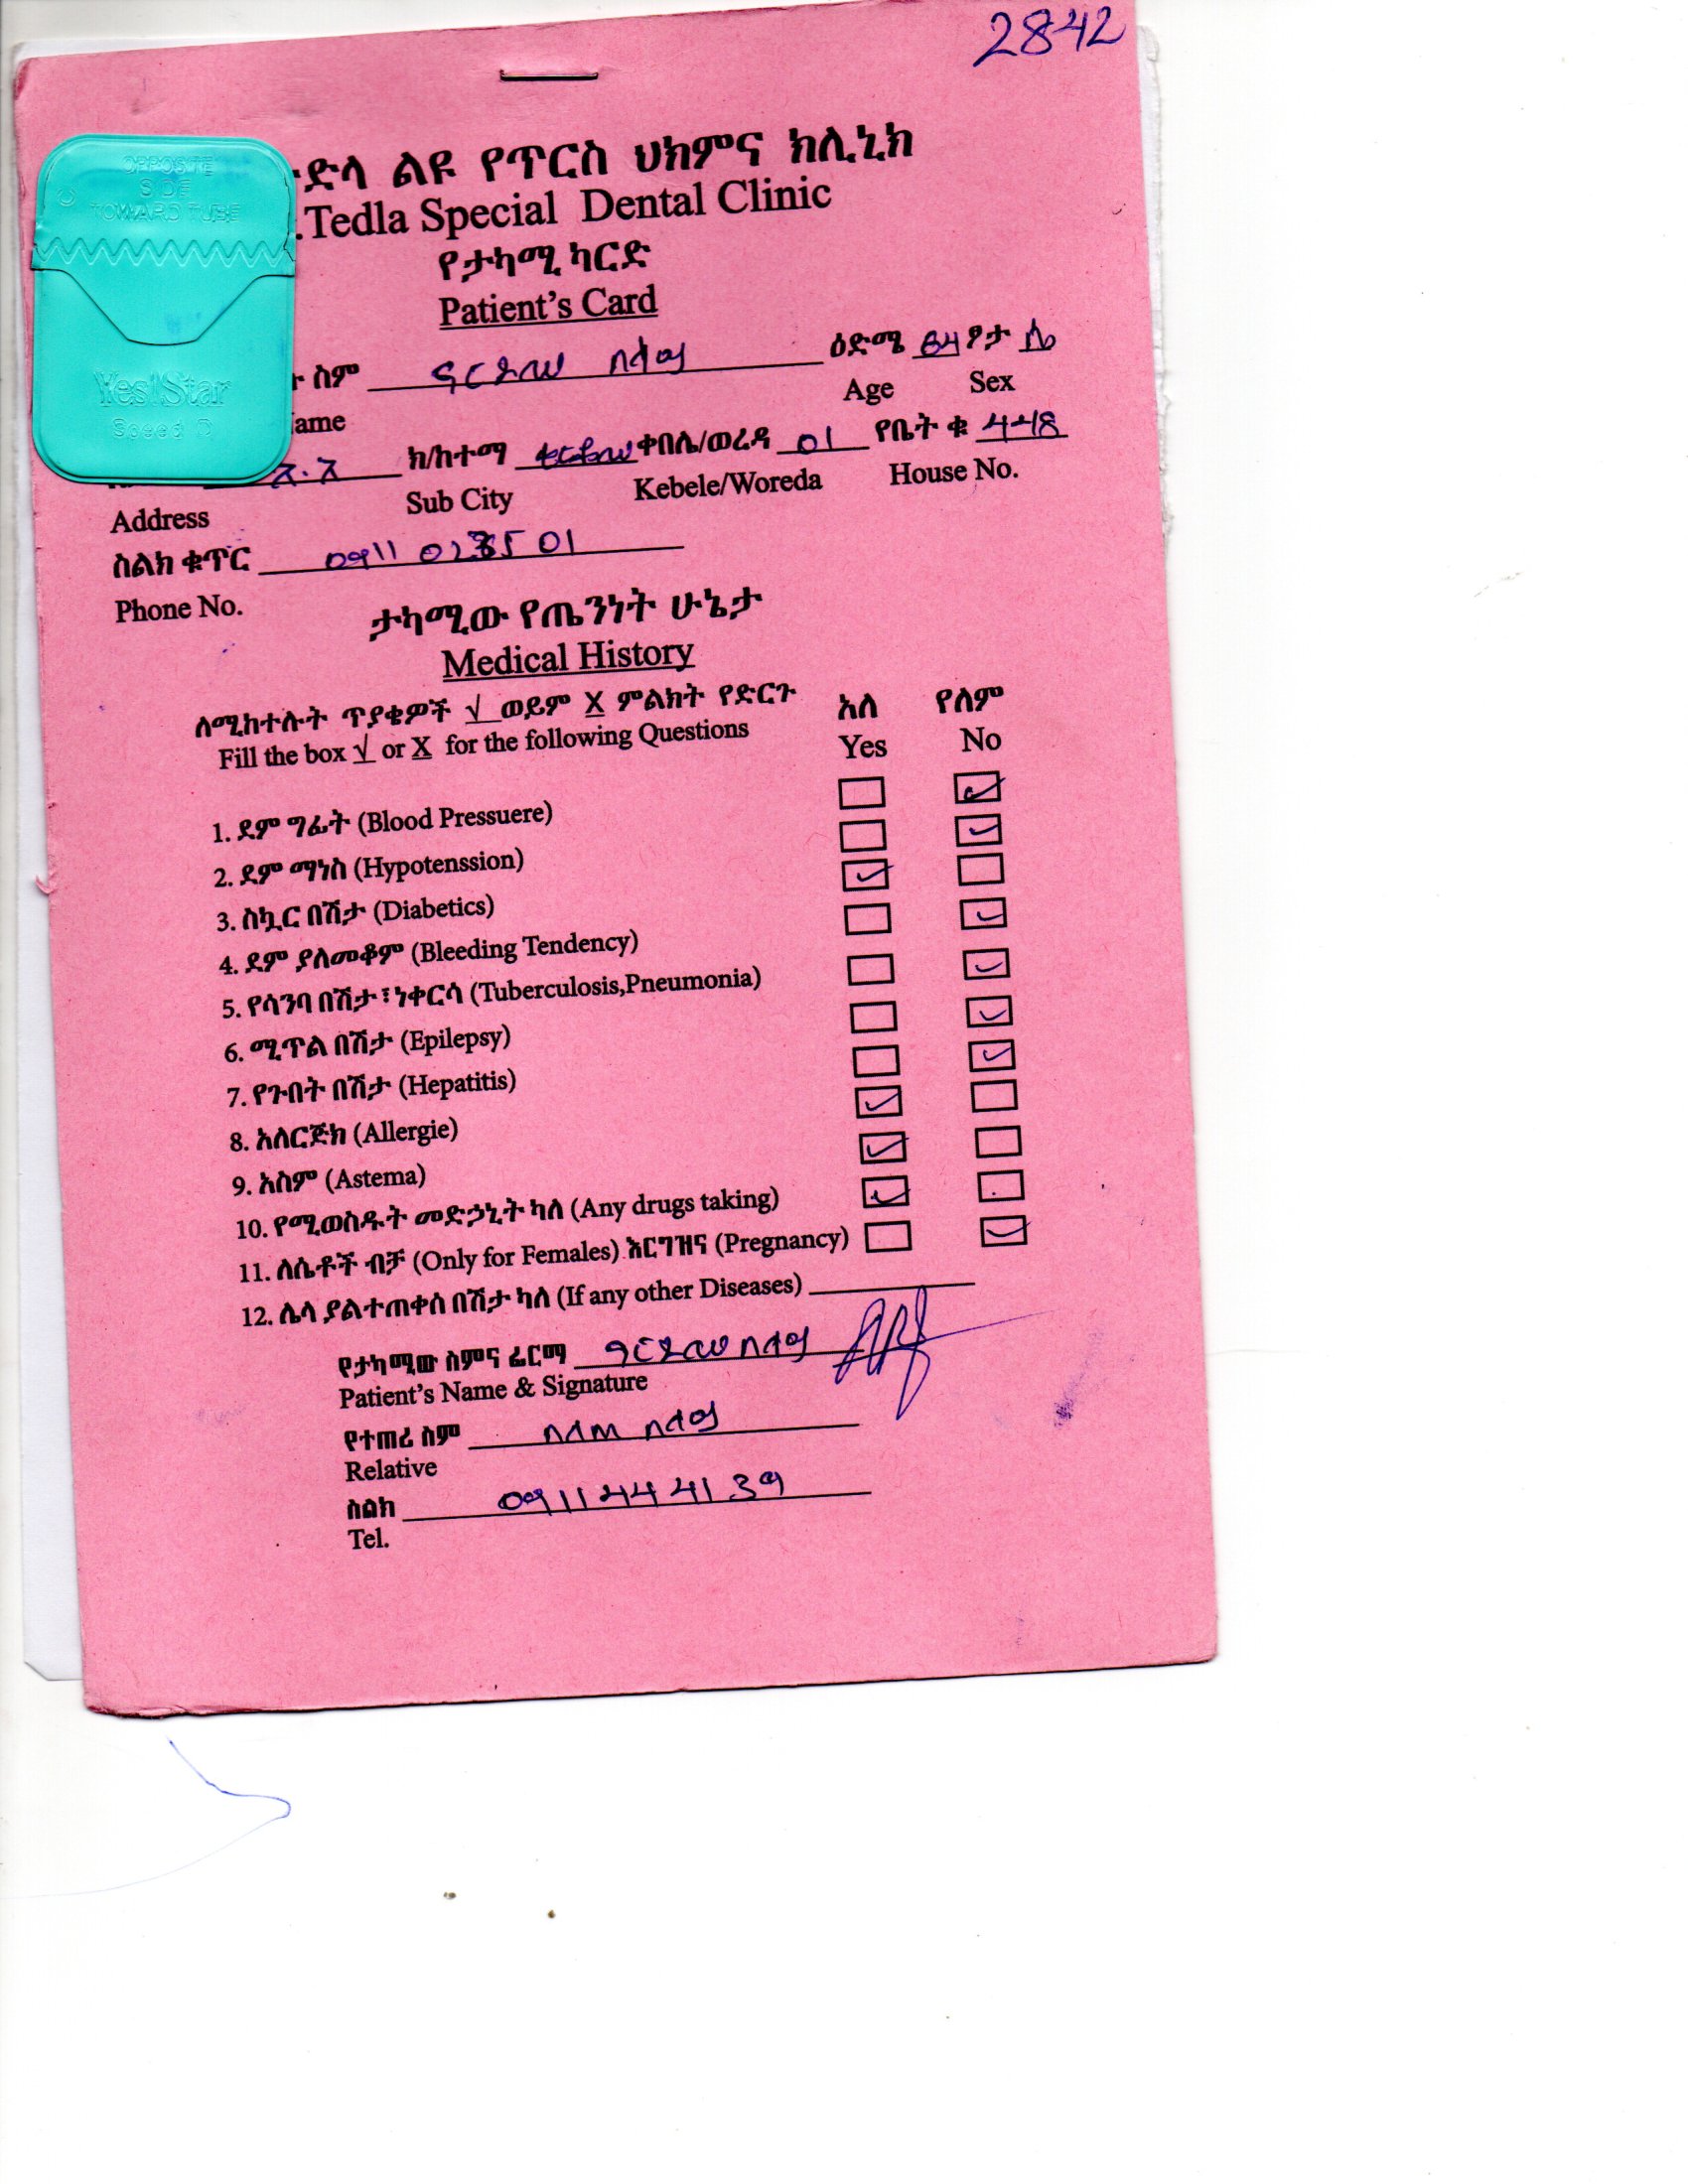 2842
ድላ ልዩ የጥርስ ህክምና ክሊኒክ
.Tedla Special Dental Clinic
የታካሚ ካርድ
Patient's Card
OPPOSITE
SIDE
TOWARD TUBE
Yes!Star
Speed D
ስም በላይ ዕድሜ 64 ፆታ ሴ
ame Age Sex
አ.አ ክ/ከተማ ቀበሌ/ወረዳ 01 የቤት ቁ 448
Address Sub City Kebele/Woreda House No.
ስልክ ቁጥር 0911 01
Phone No.
ታካሚው የጤንነት ሁኔታ
Medical History
ለሚከተሉት ጥያቄዎች √ ወይም X ምልክት የድርጉ አለ የለም
Fill the box √ or X for the following Questions Yes No
1. ደም ግፊት (Blood Pressuere) ✓
2. ደም ማነስ (Hypotenssion) ✓
3. ስኳር በሽታ (Diabetics) ✓
4. ደም ያለመቆም (Bleeding Tendency) ✓
5. የሳንባ በሽታ፣ነቀርሳ (Tuberculosis,Pneumonia) ✓
6. ሚጥል በሽታ (Epilepsy) ✓
7. የጉበት በሽታ (Hepatitis) ✓
8. አለርጅክ (Allergie) ✓
9. አስም (Astema) ✓
10. የሚወስዱት መድኃኒት ካለ (Any drugs taking) ✓
11. ለሴቶች ብቻ (Only for Females) እርግዝና (Pregnancy) ✓
12. ሌላ ያልተጠቀሰ በሽታ ካለ (If any other Diseases)
የታካሚው ስምና ፊርማ
Patient's Name & Signature
የተጠሪ ስም
Relative
ስልክ 0911444139
Tel.